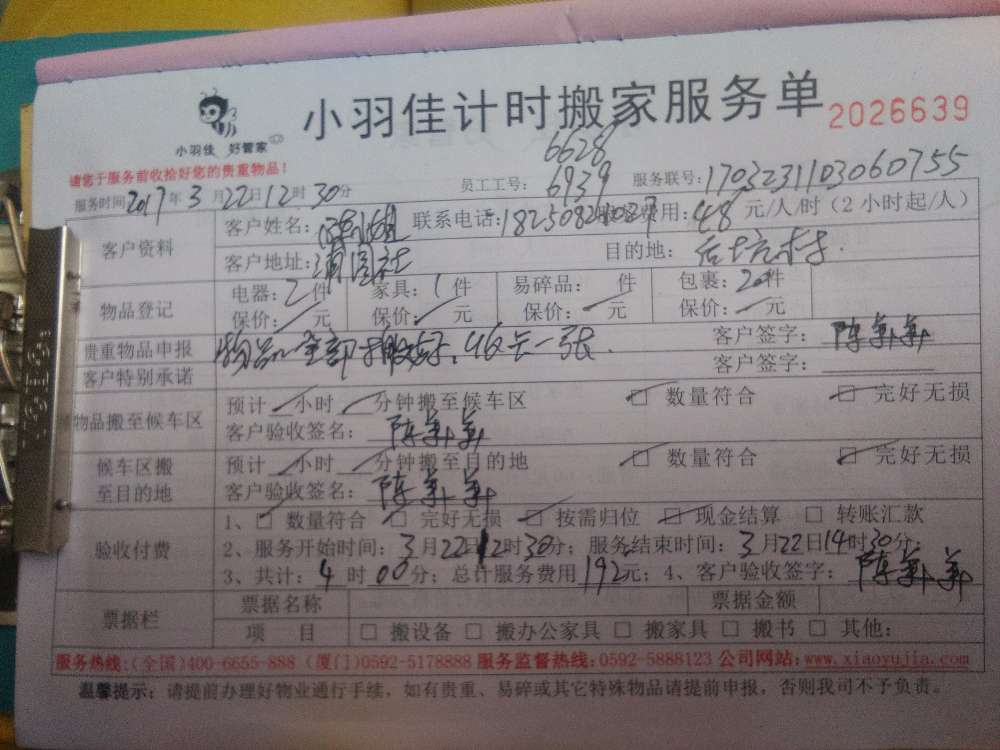 小羽佳计时搬家服务单 2026639
小羽佳 好管家
请您于服务前收拾好您的贵重物品!
6628
员工工号: 6939 服务联号:1703231103060755
服务时间2017年3月22日12时30分
客户资料 客户姓名: 联系电话: 费用:48元/人/时(2小时起/人)
客户地址: 目的地:
物品登记 电器:2件 家具:1件 易碎品: 件 包裹:20件
保价: 元 保价: 元 保价: 元 保价: 元
贵重物品申报 物品全部搬好, 一张. 客户签字:
客户特别承诺 客户签字:
物品搬至候车区 预计 小时 分钟搬至候车区 □ 数量符合 □ 完好无损
客户验收签名:
候车区搬至目的地 预计 小时 分钟搬至目的地 □ 数量符合 □ 完好无损
客户验收签名:
验收付费 1、□ 数量符合 □ 完好无损 □ 按需归位 □ 现金结算 □ 转账汇款
2、服务开始时间:3月22日12时30分;服务结束时间:3月22日14时30分;
3、共计:4时00分;总计服务费用192元;4、客户验收签字:
票据栏 票据名称 票据金额
项 目 □ 搬设备 □ 搬办公家具 □ 搬家具 □ 搬书 □ 其他:
服务热线:(全国)400-6655-888 (厦门)0592-5178888 服务监督热线:0592-5888123 公司网站:www.xiaoyujia.com
温馨提示:请提前办理好物业通行手续,如有贵重、易碎或其它特殊物品请提前申报,否则我司不予负责。